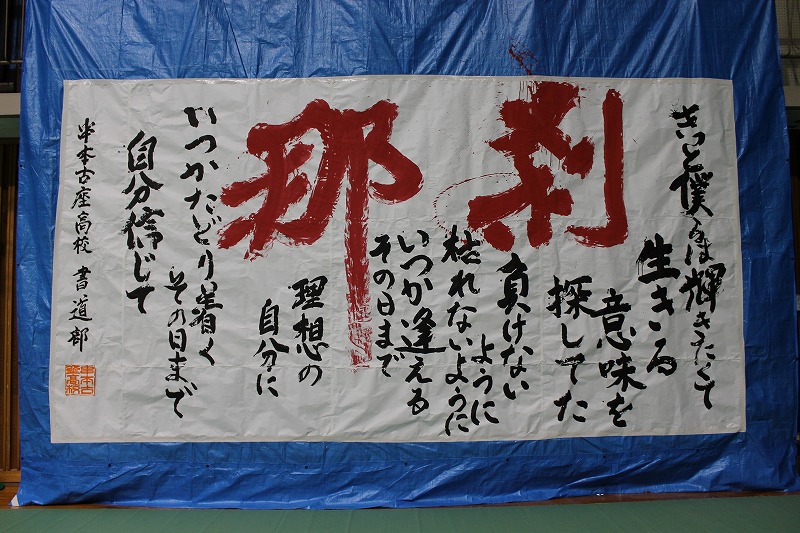 刹那
きっと僕らは輝きたくて
生きる
意味を
探してた
負けない
ように
枯れないように
いつか逢える
その日まで
理想の
自分に
いつかたどり着く
その日まで
自分信じて
串本古座高校 書道部